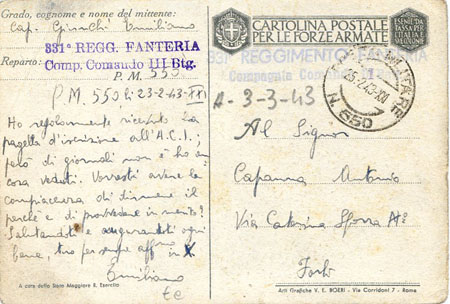 Grado, cognome e nome del mittente:
Cap. Emiliano
331° REGG. FANTERIA
Reparto: Comp. Comando III Btg.
P. M. 550
P.M. 550 li 23-2-43-XXI
Ho regolarmente ricevuto la
pagella d'iscrizione all'A.C.I.;
però di giornali non è ho an
cora veduti. Vorresti avere la
compiacenza di dirmene il
perché e di provvedere in merito?
Salutandoti e augurandoti ogni
bene, tuo per sempre affmo in
Emiliano
A cura dello Stato Maggiore R. Esercito
CARTOLINA POSTALE
PER LE FORZE ARMATE
ESENTE DA
TASSA PER
L'ITALIA E
331 REGGIMENTO FANTERIA
Compagnia Comando
POSTA MILITARE
25.2.43.XXI
N. 550
A-3-3-43
Al Signor
Capanna Antonio
Via Caterina Sforza
Forlì
Arti Grafiche V. E. BOERI - Via Corridoni 7 - Roma